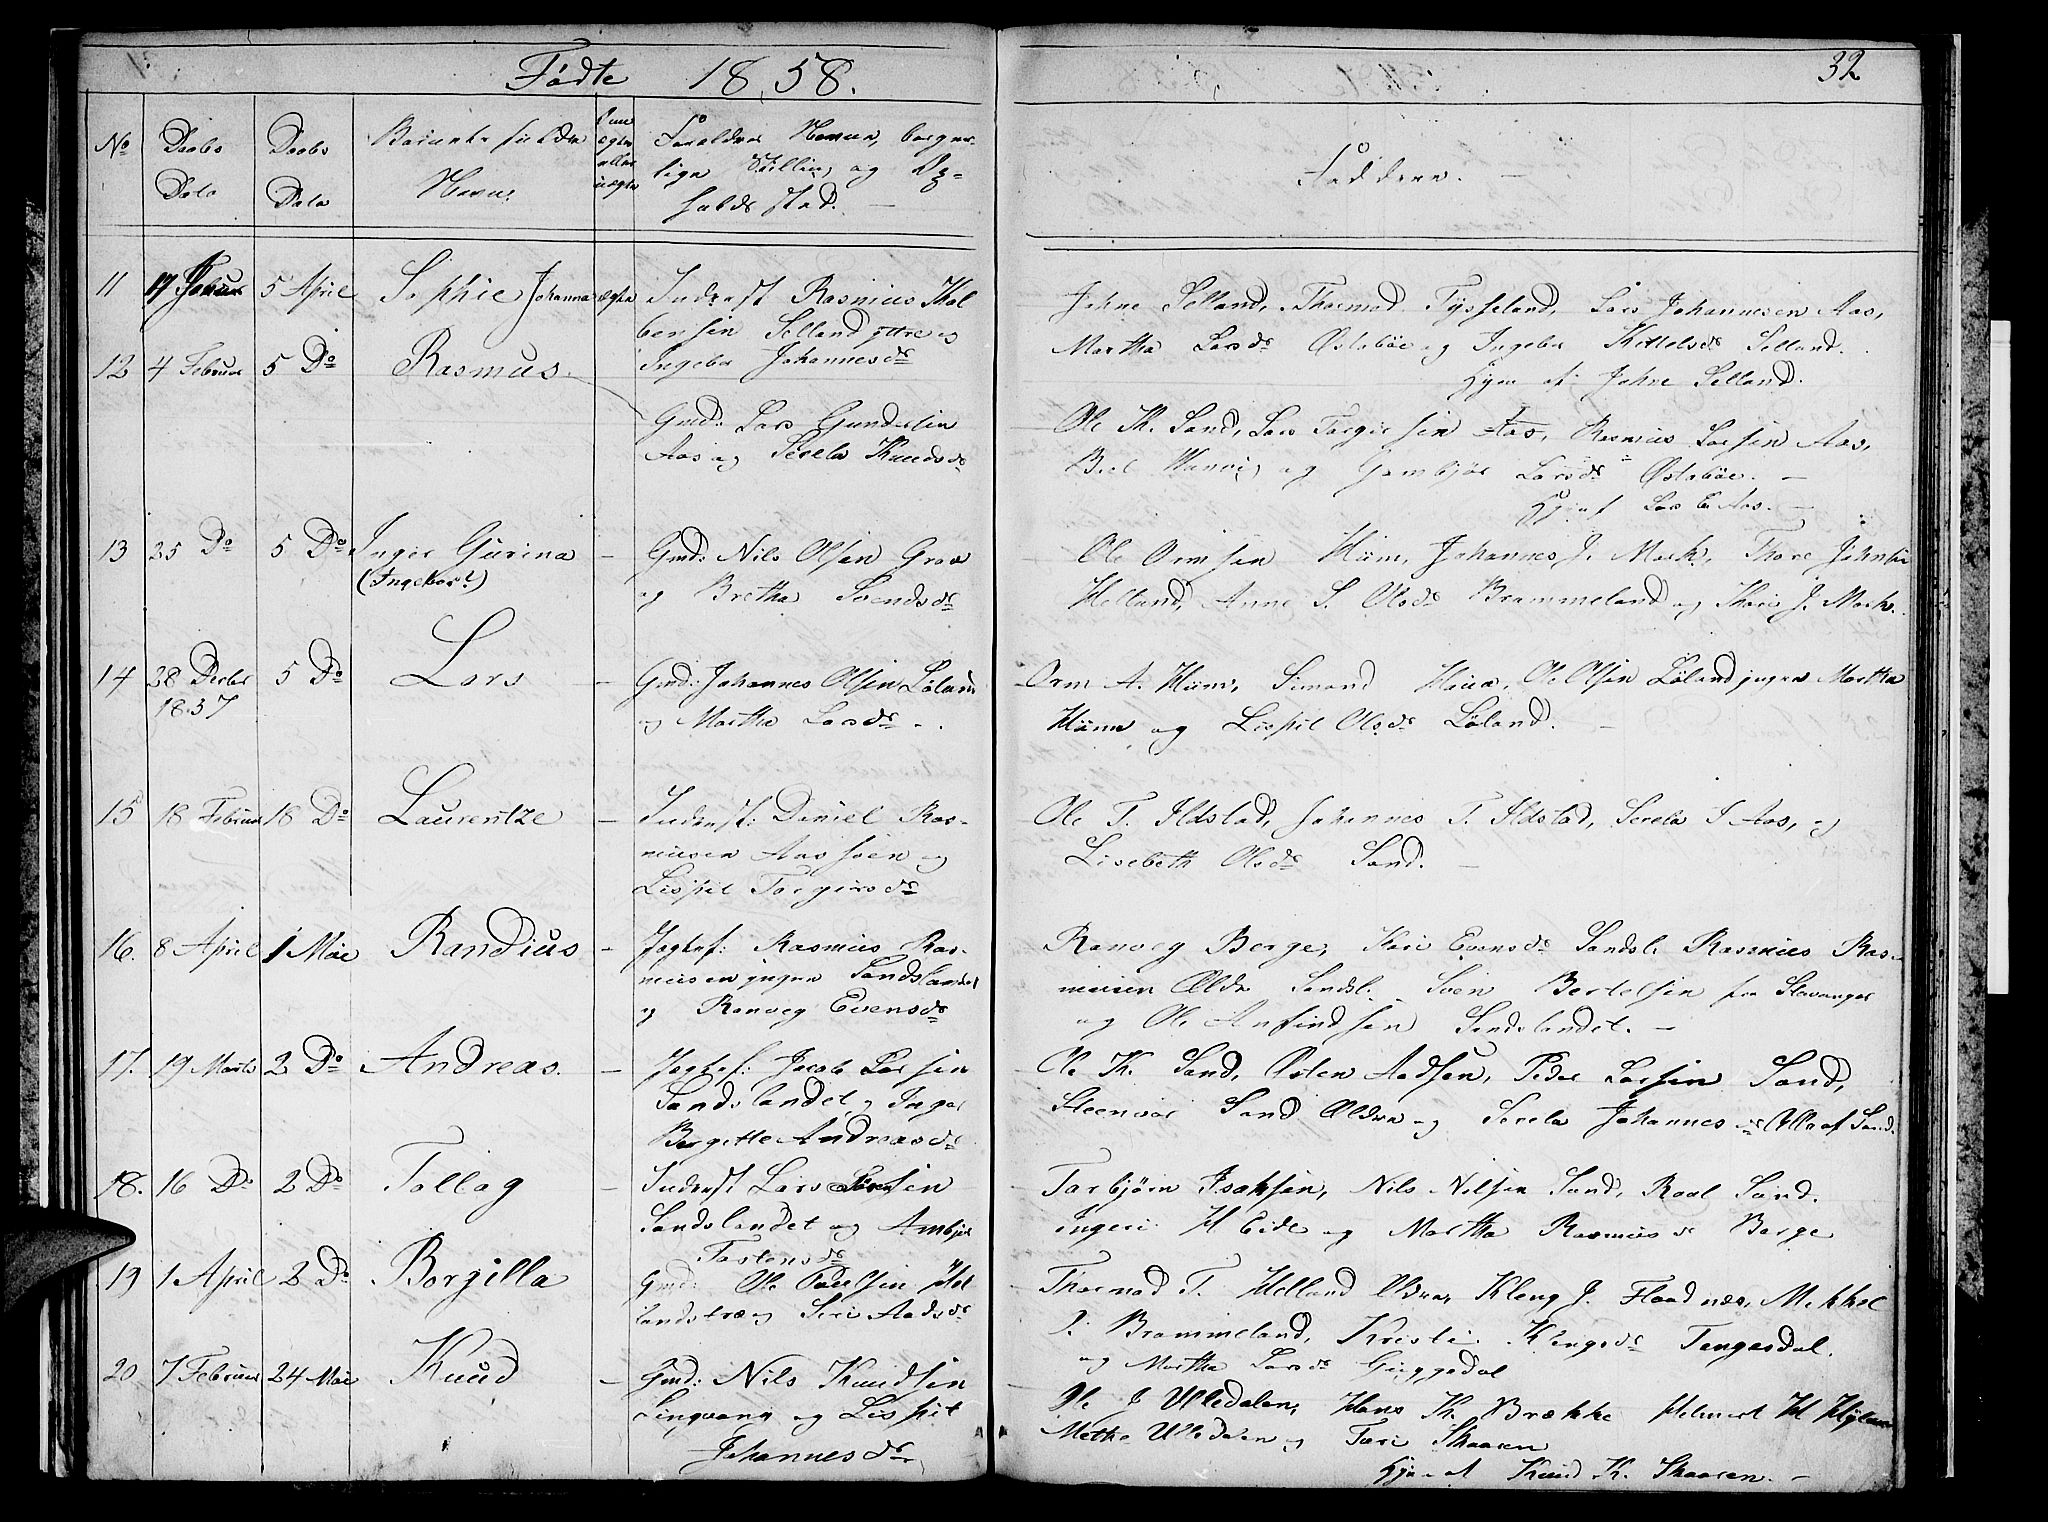 Fødte 1858.
32
No
Daabs
Dato
Daabs
Dato
Barnets fulde
Navn.
Om
ægte
eller
uægte
Forældres Navne, borger-
lige Stilling og Op-
holdssted. -
Faddere. -
11
5 April
Sophie Johanna
ægte
Inderst Rasmus Thol
bersen Selland yttre og
Ingebor Johannesdr
Jahne Selland, Thormod Tysseland, Lars Johannesen Aas,
Martha Larsdr Østabøe og Ingebor Kittelsdr Selland.
Hjem af Jahne Selland.
12
4 Februar
5 Do
Rasmus
Gmd: Lars Gundersen
Aas og Serela Knudsdr
Ole K. Sand, Lars Torgersen Aas, Rasmus Larsen Aas,
og Larsdr Østabøe. -
Hj. af Lars Aas. -
13
25 Do
5 Do
Inger Gurina
(Ingebor?)
-
Gmd: Nils Olsen Grov
og Bretha Svendsdr
Ole Ormsen Hiim, Johannes J. Mork, Thore Johnsen
Helland, Anne S. Olsdr Brommeland og Kari J. Mork.
14
28 Decbr
1857
5 Do
Lars
-
Gmd: Johannes Olsen Løland
og Martha Larsdr -.
Orm A. Hiim, Simond Ole Olsen Løland yngre Martha
Hiim og Lispet Olsdr Løland. -
15
18 Februar
18 Do
Laurentze
-
Inderst: Daniel Ras-
musen Aas og
Lispet Torgersdr
Ole T. Ilstad, Johannes T. Ilstad, Serela I Aas, og
Lisebeth Olsdr Sand. -
16.
8 April
1 Mai
Randius
-
Jagtsf: Rasmus Ras-
musen yngre Sandslandet
og Ranveg Evensdr
Ranveg Berge, Kari Evensdr Sandsl. Rasmus Ras-
musen Ældre Sandsl. Sven Bertelsen fra Stavanger
og Ole Anfindsen Sandslandet. -
17.
19 Marts
2 Do
Andreas.
-
Jagtsf: Jacob Larsen
Sandslandet og Inger
Bergitte Andreasdr
Ole K. Sand, Østen Aadsen, Peder Larsen Sand,
Steenvor Sand Ældre og Serela Johannesdr Alle af Sand.
18.
16 Do
2 Do
Tollag
-
Inderst Lars
Sandslandet og Ambjør
Tostensdr
Torbjørn Isaksen, Nils Nilsen Sand, Roal Sand.
Ingeri H Eide og Martha Rasmusdr Berge
19
1 April
2 Do
Borgilla
Gmd: Ole Povelsen Høi
landstræ og Siri Aadsdr
Thormod T. Helland Ældre, Kleng J. Flaadnes, Mikkel
J. Brommeland, Kristi Klengsdr Tengesdal.
og Martha Larsdr
20
7 Februar
24 Mai
Knud
-
Gmd: Nils Knudsen
Lingvang og Lispet
Johannesdr
Ole J Ulledalen, Hans K. Brække Helmert H Hylen
Metha Ulledalen og Tari Skaaren
Hjem af Knud K. Skaaren. -